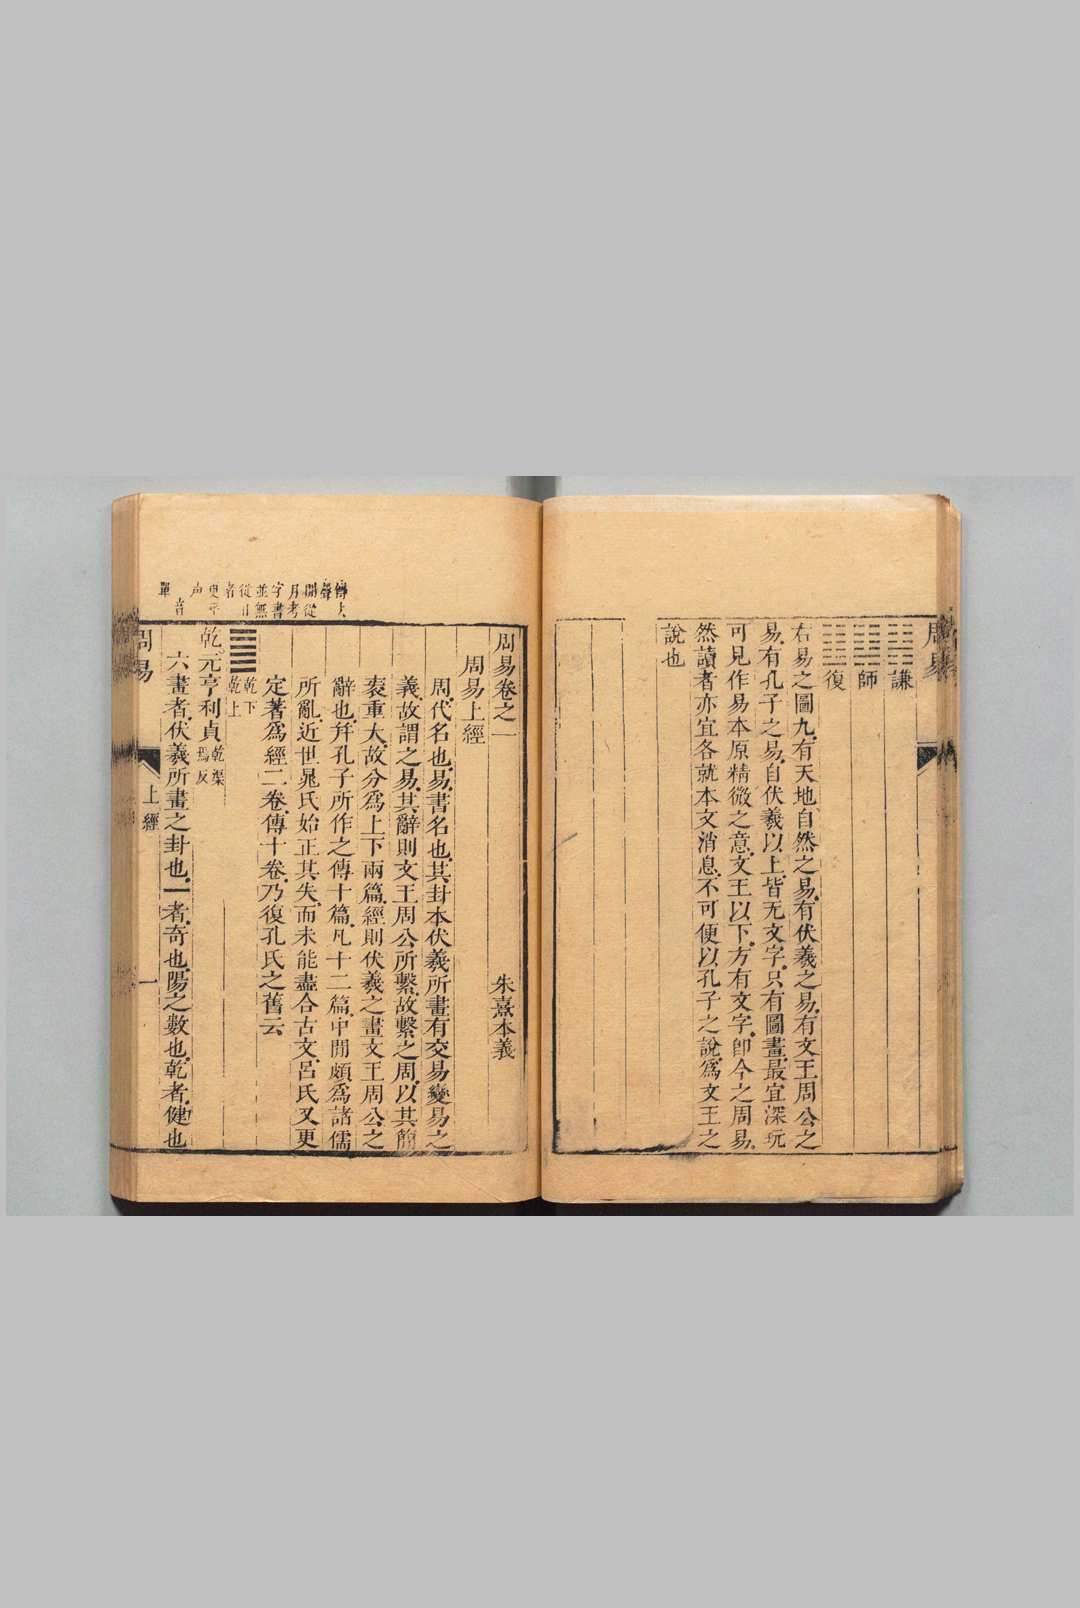 周易
謙
師
復
右易之圖九有天地自然之易有伏羲之易有文王周公之
易有孔子之易自伏羲以上皆无文字只有圖畫最宜深玩
可見作易本原精微之意文王以下方有文字卽今之周易
然讀者亦宜各就本文消息不可便以孔子之說爲文王之
說也
周易卷之一 朱熹本義
周易上經
周代名也易書名也其卦本伏羲所畫有交易變易之
義故謂之易其辭則文王周公所繫故繫之周以其簡
袠重大故分爲上下兩篇經則伏羲之畫文王周公之
辭也幷孔子所作之傳十篇凡十二篇中閒頗爲諸儒
所亂近世晁氏始正其失而未能盡合古文呂氏又更
定著爲經二卷傳十卷乃復孔氏之舊云
乾下
乾上
乾元亨利貞乾渠
焉反
六畫者伏羲所畫之卦也一者奇也陽之數也乾者健也
聲
閒從
月考
字書
並無
從日
者
更平
声
音
單
周易 上經 一